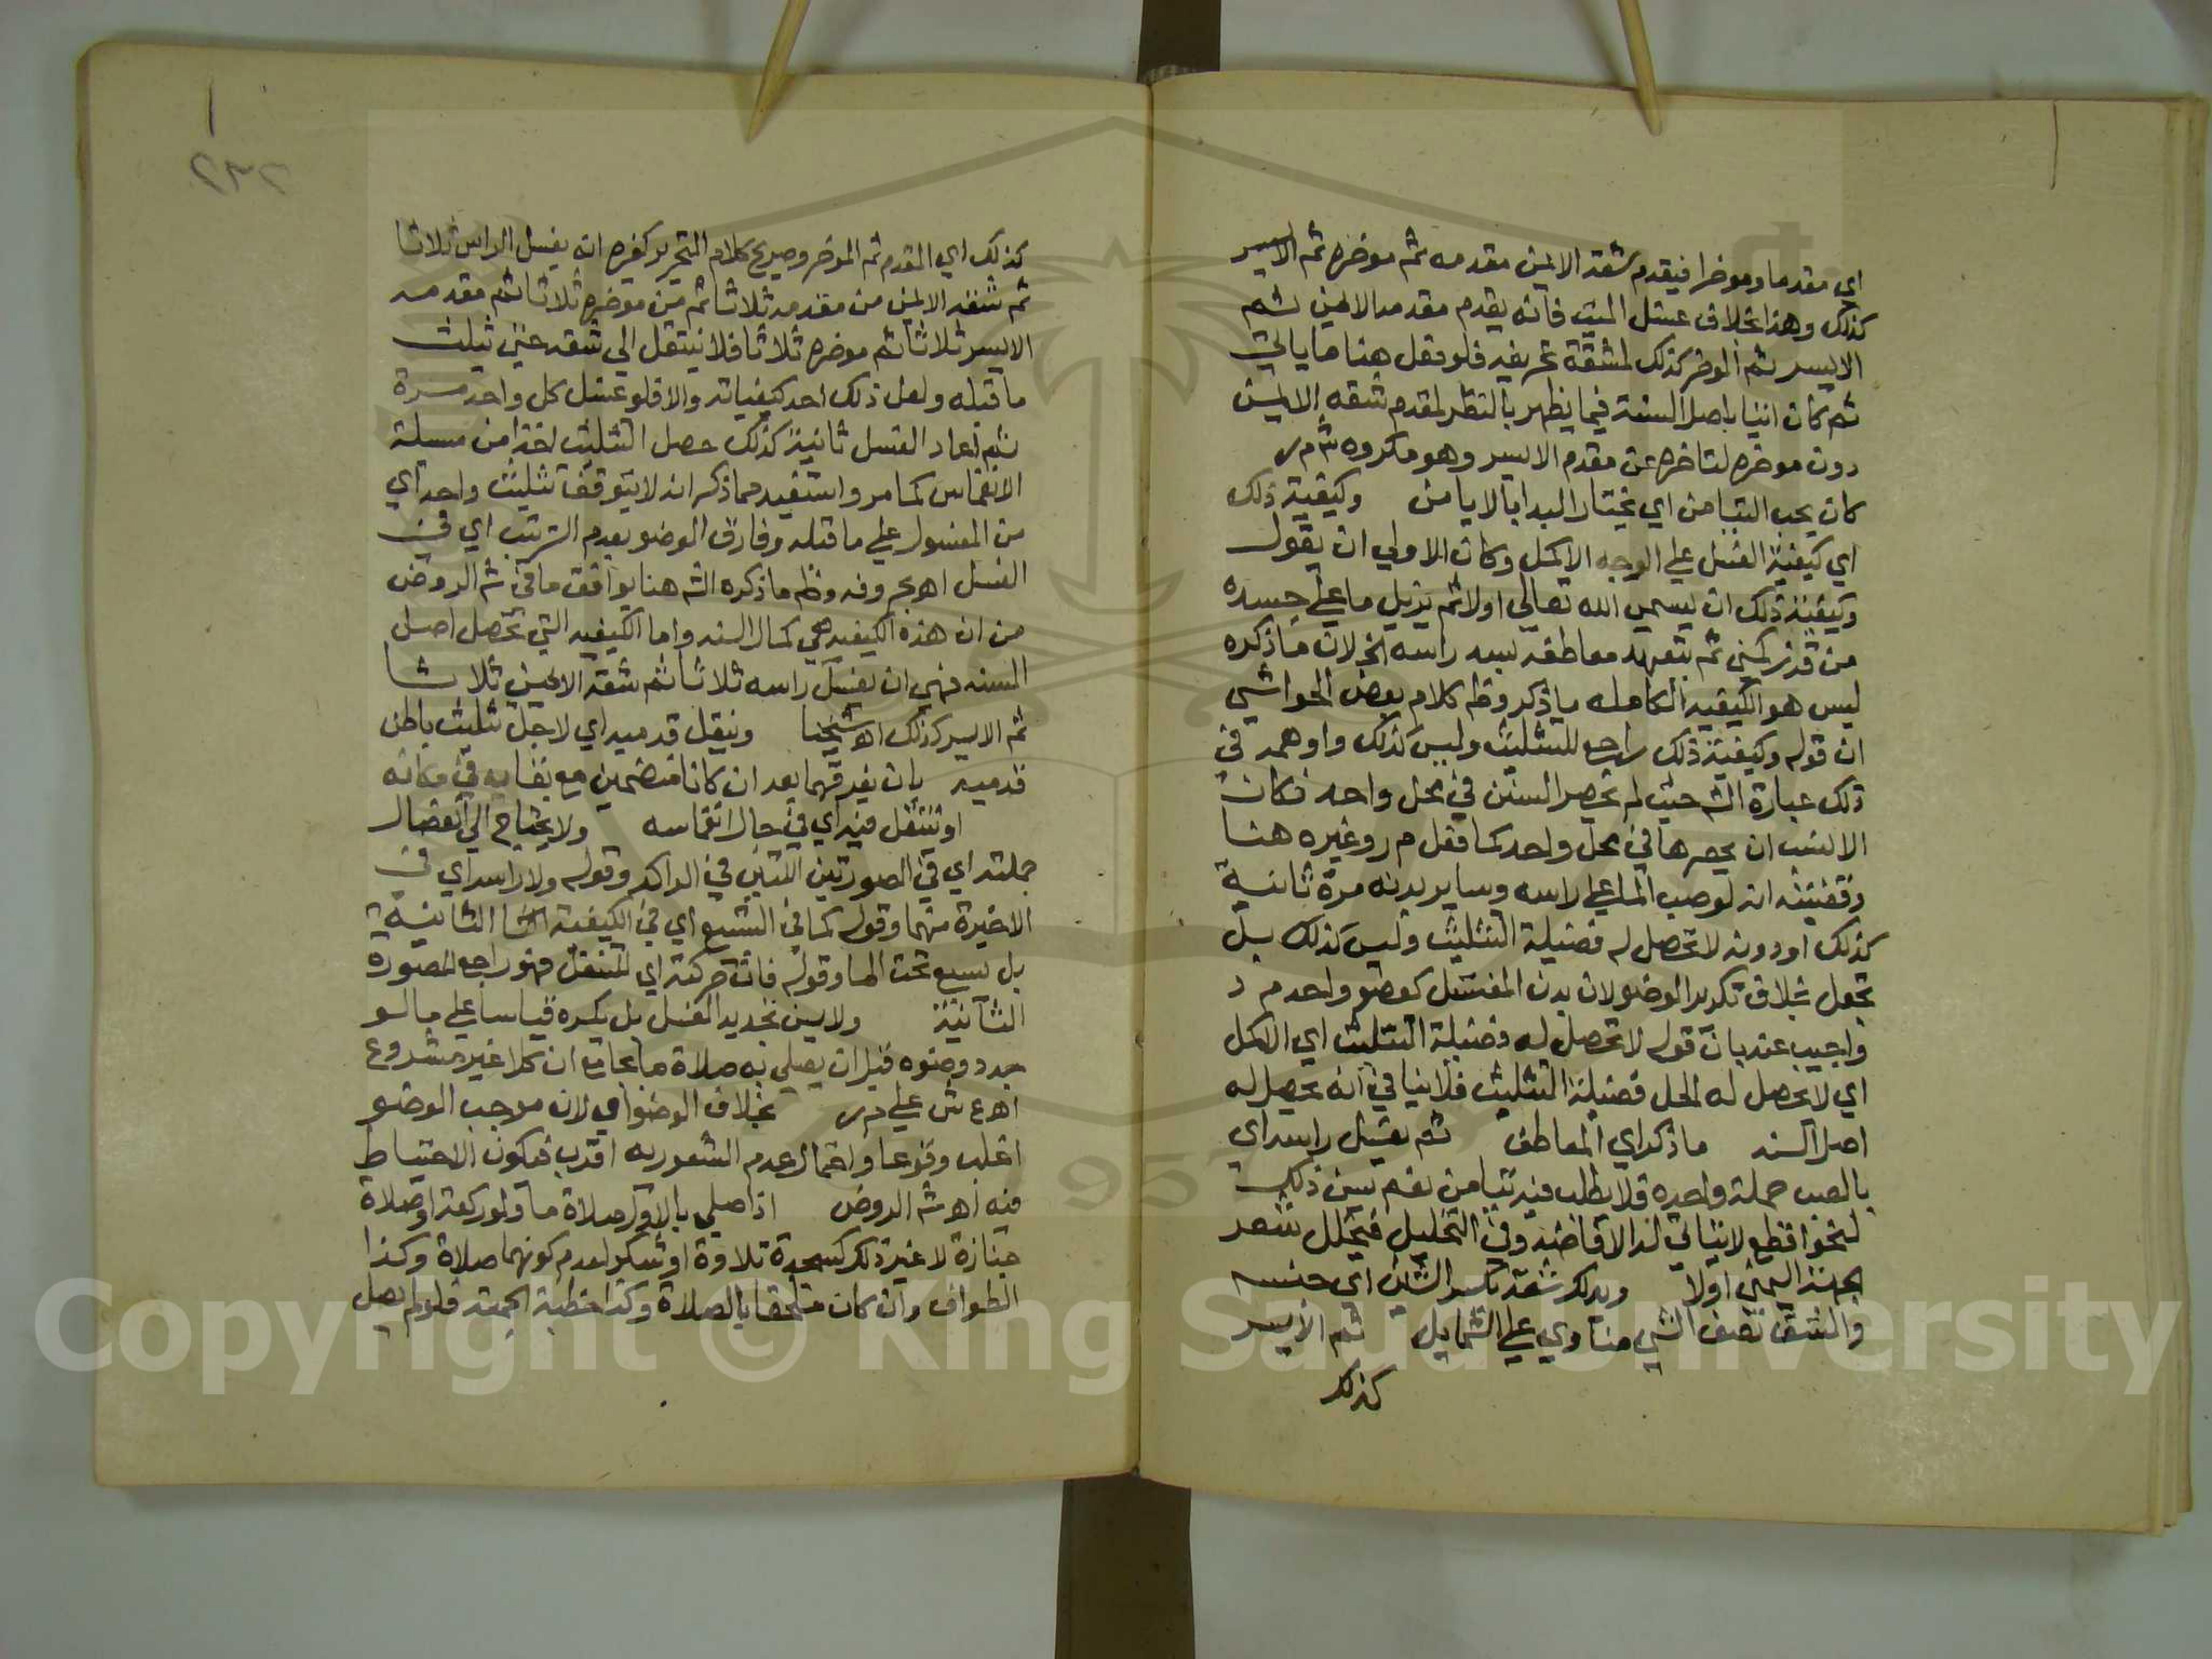 اي مقدما وموخرا فيقدم شقه الايمن مقدمه ثم موخره ثم الايسر
كذلك وهذا بخلاف غسل الميت فانه يقدم مقدمه الايمن ثم
الايسر ثم الموخر كذلك لمشقة تحريفه فلو فعل هنا ما ياتي
ثم كان اتيا باصل السنة فيما يظهر بالنظر لمقدم شقه الايمن
دون موخره لتاخره عن مقدم الايسر وهو مكروه ش م ر
كان يحب التيامن اي يختار البدا بالايامن وكيفية ذلك
اي كيفية الغسل علي الوجه الاكمل وكان الاولي ان يقول
وكيفية ذلك ان يسمي الله تعالي اولا ثم يزيل ما علي جسده
من قذر كمني ثم يتعهد معاطفه بعد راسه الخ لان ما ذكره
ليس هو الكيفيه الكامله ما ذكر وظ كلام بعض الحواشي
ان قوله وكيفية ذلك راجع للتثليث وليس كذلك واوهمه في
ذلك عبارة الش حيث لم يحصر السنن في محل واحد فكان
الانسب ان يحصرها في محل واحد كما فعل م ر وغيره هنا
وقضيته انه لو صب الما علي راسه وساير بدنه مرة ثانية
كذلك او دونه لا تحصل له فضيلة التثليث وليس كذلك بل
تحصل بخلاف تكرير الوضو لان بدن المغتسل كعضو واحد م د
واجيب عنه بان قوله لا تحصل له فضيلة التثليث اي الاكمل
اي لا يحصل له المحل فضيلة التثليث فلا ينافي انه يحصل له
اصل السنه ما ذكر اي المعاطف ثم يغسل راسه اي
بالصب جملة واحده فلا يطلب فيه تيامن نعم يسن ذلك
لنحو اقطع لا يتاتي له الافاضه وفي التخليل فيخلل شعر
الجهة اليمني اولا ويدلك شقه بكسر الشين اي جنبه
والشق نصف الشي مناوي علي الشمايل ثم الايسر
كذلك
٢٣٢
كذلك اي المقدم ثم الموخر وصريح كلام التحرير كغيره انه يغسل الراس ثلاثا
ثم شقه الايمن من مقدمه ثلاثا ثم من موخره ثلاثا ثم مقدمه
الايسر ثلاثا ثم موخره ثلاثا فلا ينتقل الي شقه حتي يثلث
ما قبله ولعل ذلك احد كيفياته والا فلو غسل كل واحد مرة
ثم اعاد الغسل ثانية كذلك حصل التثليث اخذا من مسلة
الانغماس كما مر واستفيد مما ذكر انه لا يتوقف تثليث واحد اي
من المغسول علي ما قبله وفارق الوضو بعدم الترتيب اي في
الغسل اه بحروفه وظ ما ذكره الش هنا يوافق ما في ش الروض
من ان هذه الكيفيه هي كمال السنه واما الكيفيه التي تحصل اصل
السنه فهي ان يغسل راسه ثلاثا ثم شقه الايمن ثلاثا
ثم الايسر كذلك اه شيخنا وينقل قدميه اي لاجل تثليث باطن
قدميه بان يفرقهما بعد ان كانا منضمين مع بقايه في مكانه
او ينتقل فيه اي في حال انغماسه ولا يحتاج الي انفصال
جملته اي في الصورتين اللتين في الراكد وقوله ولا راسه اي في
الاخيرة منهما وقوله كما في التسبع اي في الكيفية الثانية
بل يسبع تحت الما وقوله فان حركته اي المتنقل فهو راجع للصورة
الثانية ولا يسن تجديد الغسل بل يكره قياسا علي ما لو
جدد وضوه قبل ان يصلي به صلاة ما بجامع ان كلا غير مشروع
اه ع ش علي م ر بخلاف الوضو اي لان موجب الوضو
اغلب وقوعا واحتمال عدم الشعور به اقرب فيكون الاحتياط
فيه اه ش الروض اذا صلي بالاول صلاة ما ولو ركعة او صلاة
جنازة لا غير ذلك كسجدة تلاوة او شكر لعدم كونهما صلاة وكذا
الطواف وان كان ملحقا بالصلاة وكذا خطبة الجمعة فلو لم يصل
Copyright © King Saud University